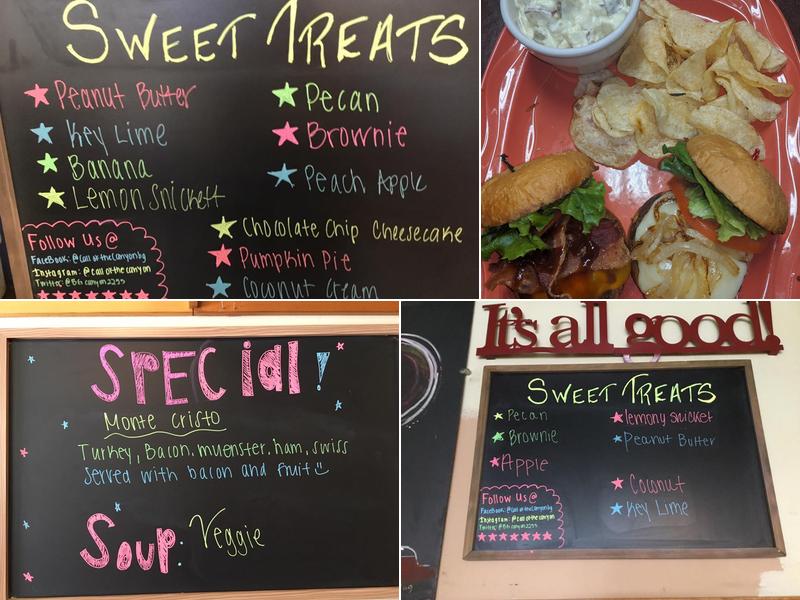 SWEET TREATS
Peanut Butter
Key Lime
Banana
Lemon Snickett
Pecan
Brownie
Peach Apple
Chocolate Chip Cheesecake
Pumpkin Pie
Coconut Cream
Follow Us @
FaceBook: @Call of the Canyonbg
Instagram: @callofthecanyon
Twitter: @BG Canyon2233
SPECial!
Monte Cristo
Turkey, Bacon, muenster, ham, swiss
Served with bacon and fruit
Soup. Veggie
It's all good!
SWEET TREATS
Pecan
Brownie
Apple
lemony snicket
Peanut Butter
Coconut
Key Lime
Follow Us @
FaceBook: @Call of the Canyonbg
Instagram: @callofthecanyon
Twitter: @BG Canyon2233